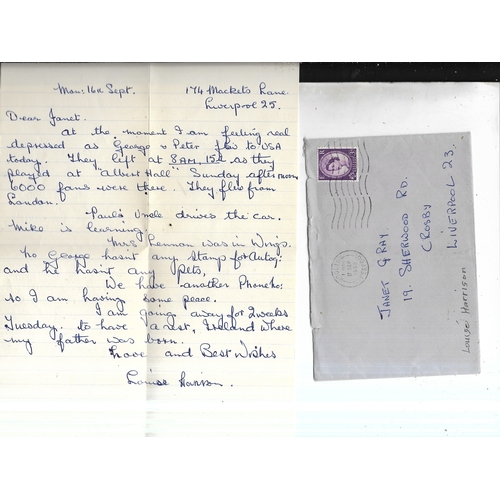 Mon: 16th Sept.
174 Mackets Lane
Liverpool 25.
Dear Janet.
at the moment I am feeling real
depressed as George & Peter flew to USA
today. They left at 8AM, 15th as they
played at "Albert Hall" Sunday afternoon
6000 fans were there. They flew from
London.
Paul's Uncle drives the car.
Mike is learning.
Mrs Lennon was in Wings.
No George hasn't any Stamp for Autog:
and he hasn't any Pets,
We have another Phone No:
so I am having some peace.
I am going away for 2 weeks
Tuesday. to have a rest, Ireland where
my father was born.
Love and Best Wishes
Louise Harrison.
JANET GRAY
19. SHERWOOD RD.
CROSBY
LIVERPOOL 23.
Louise Harrison